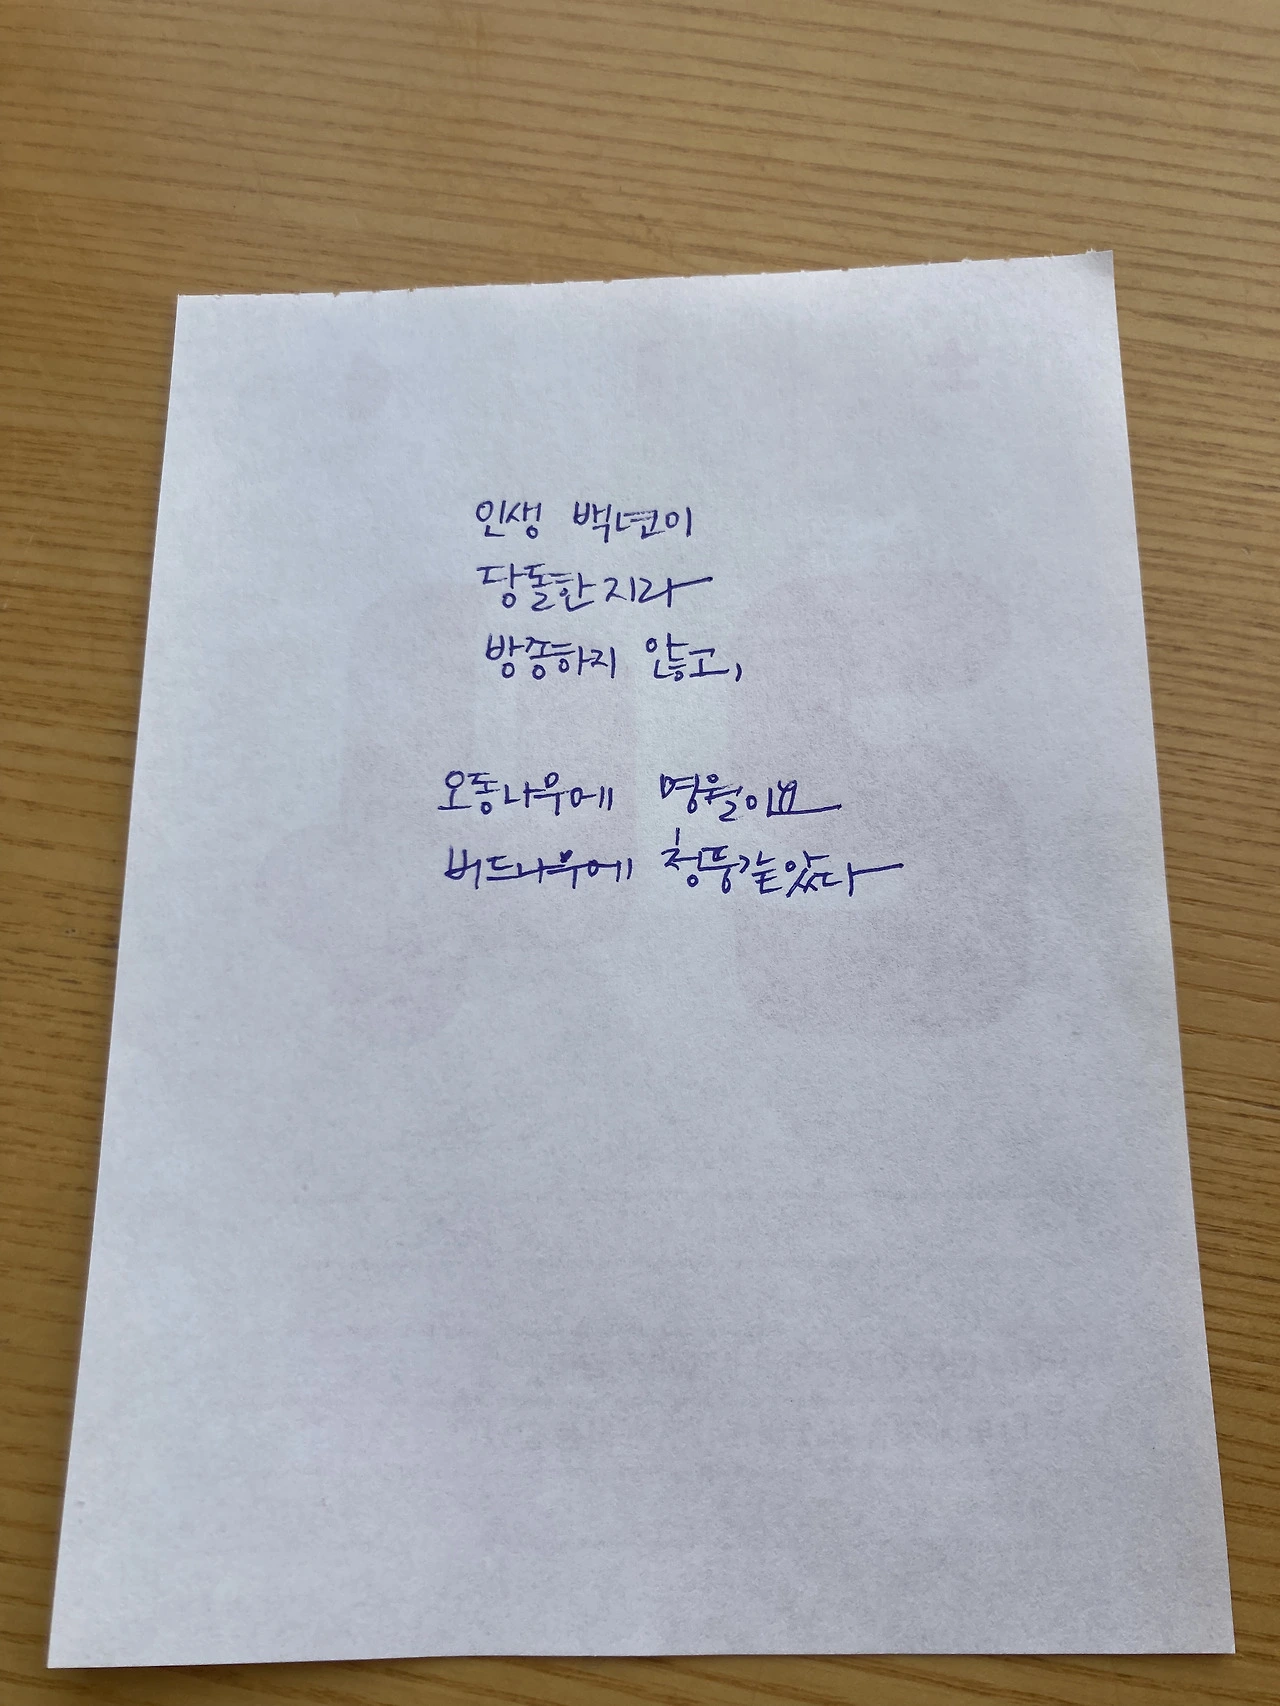 인생 백년이
당돌한지라
방종하지 않고,
오동나무에 명월이요
버드나무에 청풍같았다